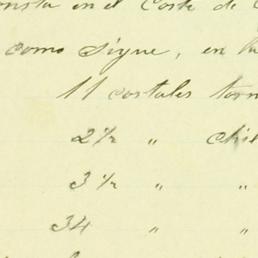 en el Corte de
como sigue, en
11 costales
2 1/2 " Chil
3 1/2 " "
34 " "